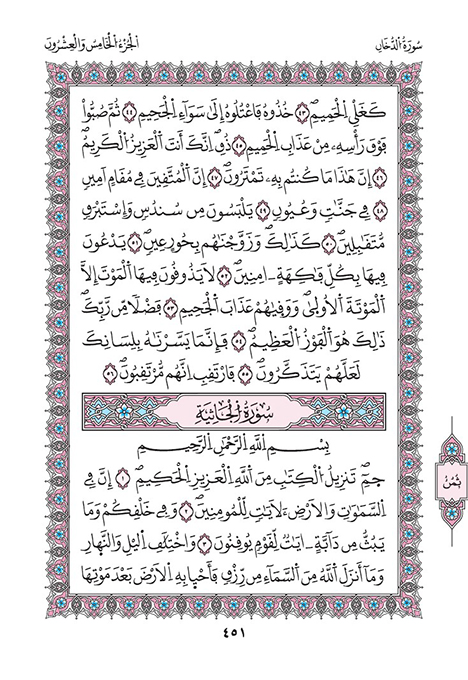 سُورَةُ الدُّخَانِ
الْجُزْءُ الْخَامِسُ وَالْعِشْرُونَ
كَغَلْيِ الْحَمِيمِ ٤٣ خُذُوهُ فَاعْتُلُوهُ إِلَىٰ سَوَآءِ الْجَحِيمِ ٤٤ ثُمَّ صُبُّواْ
فَوْقَ رَأْسِهِۦ مِنْ عَذَابِ الْحَمِيمِ ٤٥ ذُقِ اِنَّكَ أَنتَ الْعَزِيزُ الْكَرِيمُ
٤٦ إِنَّ هَٰذَا مَا كُنتُم بِهِۦ تَمْتَرُونَ ٤٧ إِنَّ الْمُتَّقِينَ فِى مُقَامٍ اَمِينٍ
٤٨ فِى جَنَّٰتٍ وَعُيُونٍ ٤٩ يَلْبَسُونَ مِن سُندُسٍ وَإِسْتَبْرَقٍ
مُّتَقَٰبِلِينَ ٥٠ كَذَٰلِكَ وَزَوَّجْنَٰهُم بِحُورٍ عِينٍ ٥١ يَدْعُونَ
فِيهَا بِكُلِّ فَٰكِهَةٍ ـامِنِينَ ٥٢ لَا يَذُوقُونَ فِيهَا الْمَوْتَ إِلَّا
الْمَوْتَةَ الُاولَىٰ وَوَقَىٰهُمْ عَذَابَ الْجَحِيمِ ٥٣ فَضْلًا مِّن رَّبِّكَ
ذَٰلِكَ هُوَ الْفَوْزُ الْعَظِيمُ ٥٤ فَإِنَّمَا يَسَّرْنَٰهُ بِلِسَانِكَ
لَعَلَّهُمْ يَتَذَكَّرُونَ ٥٥ فَارْتَقِبِ اِنَّهُم مُّرْتَقِبُونَ ٥٦
سُورَةُ الْجَاثِيَةِ
بِسْمِ اللَّهِ الرَّحْمَٰنِ الرَّحِيمِ
حمٓ تَنزِيلُ الْكِتَٰبِ مِنَ اللَّهِ الْعَزِيزِ الْحَكِيمِ ١ إِنَّ فِى
السَّمَٰوَٰتِ وَالَارْضِ ءَلَايَٰتٍ لِّلْمُومِنِينَ ٢ وَفِى خَلْقِكُمْ وَمَا
يَبُثُّ مِن دَآبَّةٍ ـايَٰتٌ لِّقَوْمٍ يُوقِنُونَ ٣ وَاخْتِلَٰفِ اِلَّيْلِ وَالنَّهَارِ
وَمَآ أَنزَلَ اللَّهُ مِنَ السَّمَآءِ مِن رِّزْقٍ فَأَحْيَا بِهِ الَارْضَ بَعْدَ مَوْتِهَا
ثُمُنُ
٤٥١